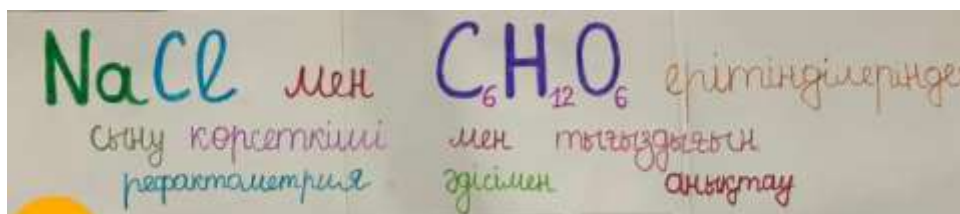 NaCl мен C₆H₁₂O₆ ерітінділерінде
сыну көрсеткіші мен тығыздығын
рефактометрия әдісімен анықтау